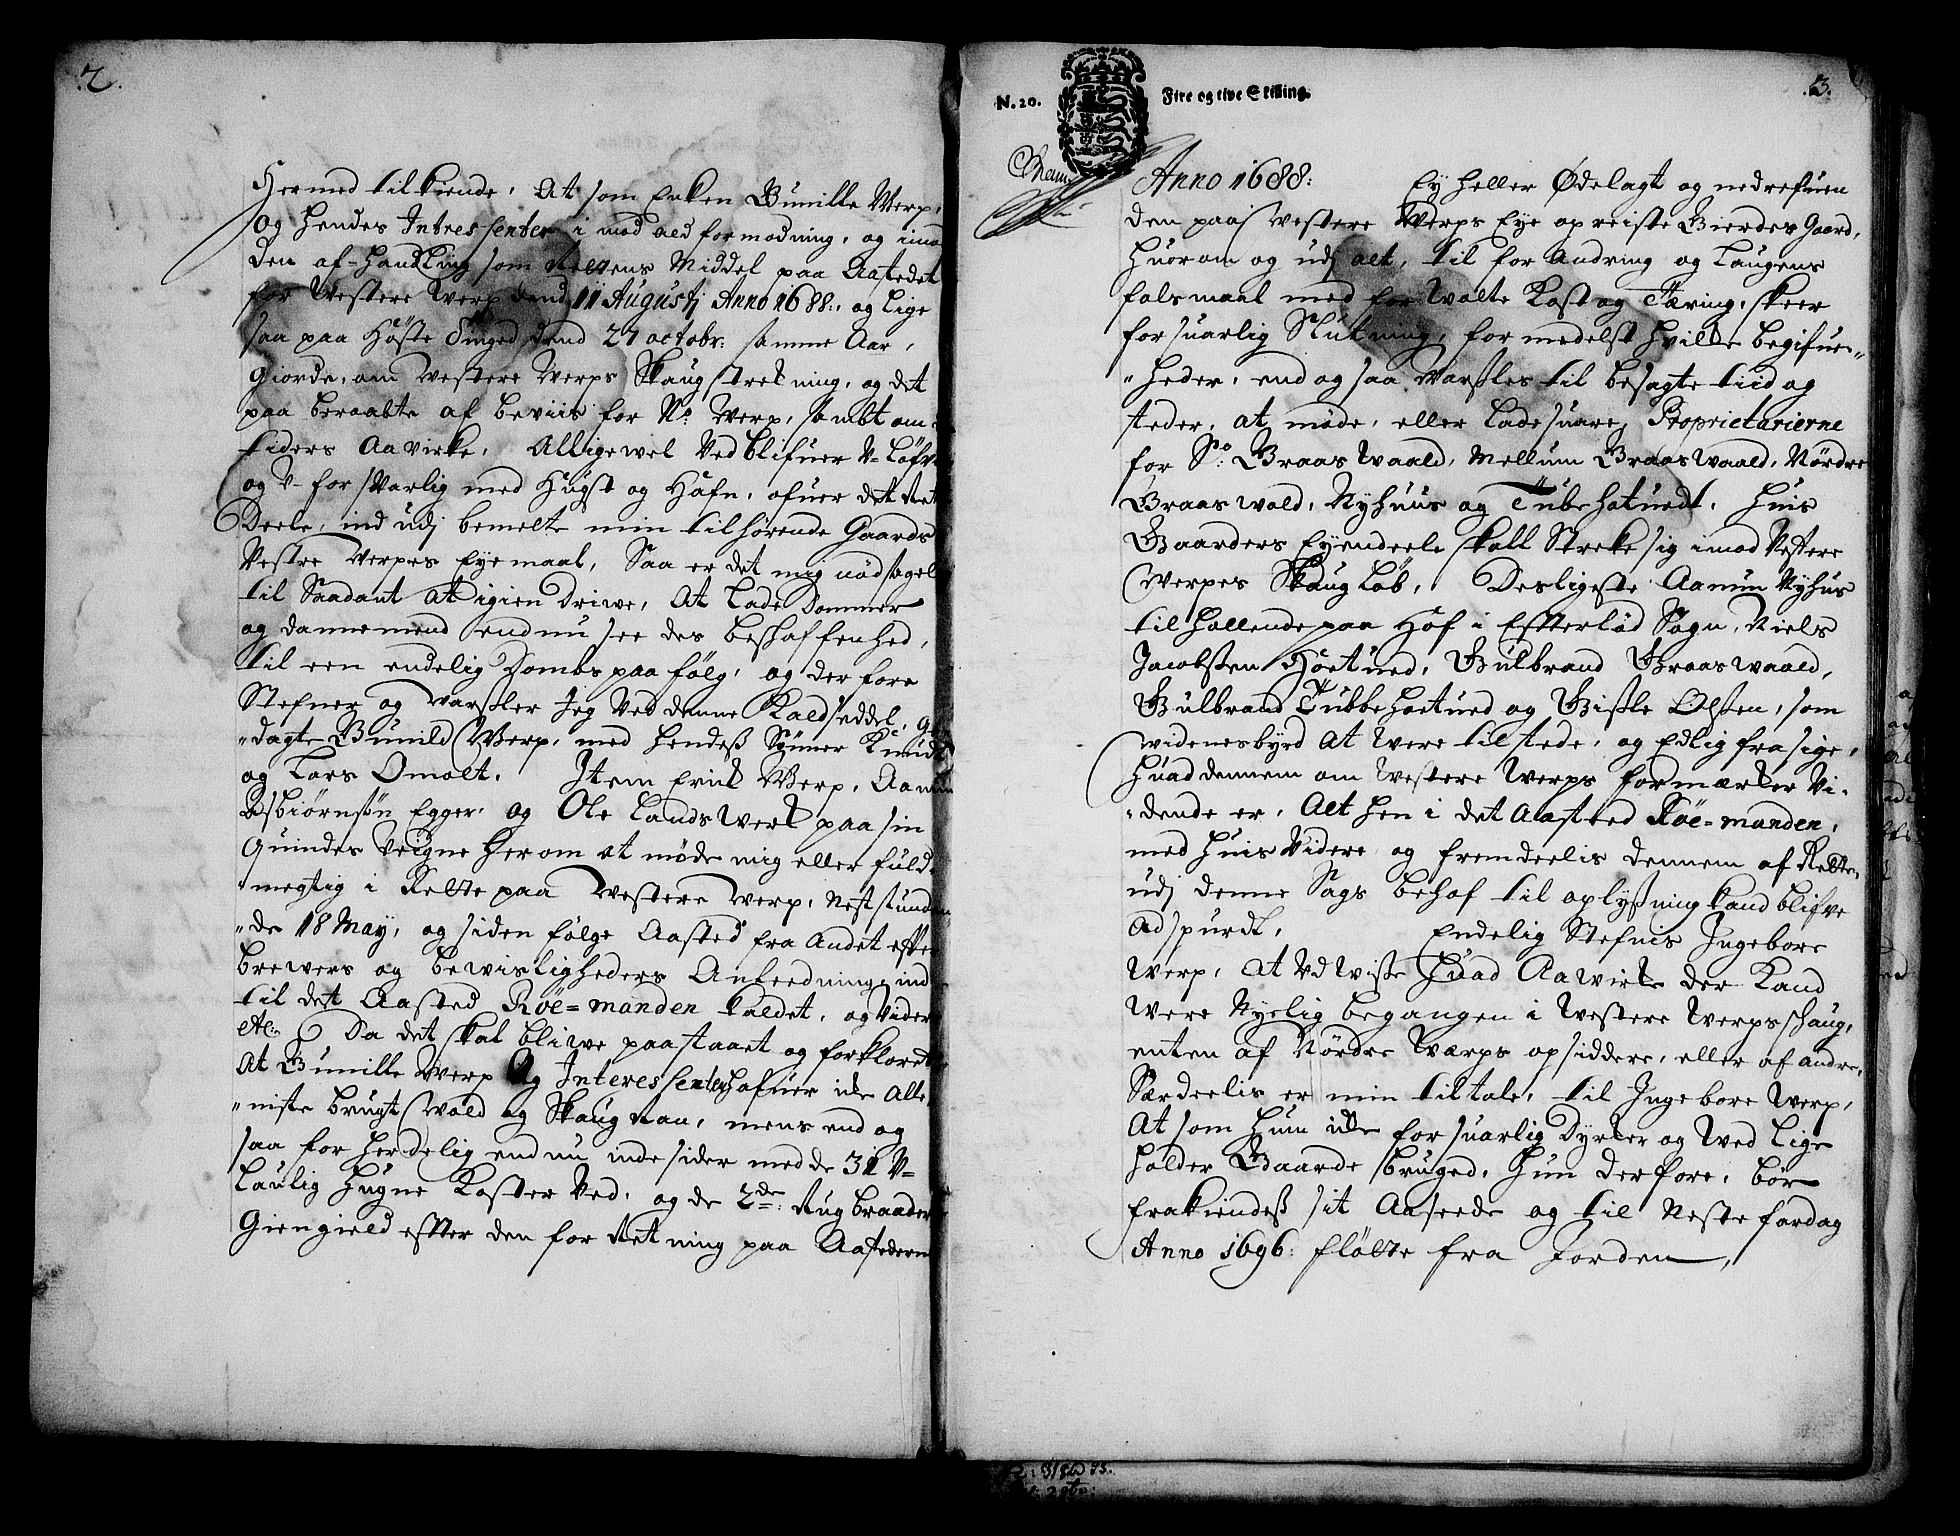 2.
Hermed tilkiende, At som Enken Gunille Werp,
Og hendes Intressenter i mod ald formodning, og imod
den af-handling som Rettens Middel paa Aastedet
for Vestere Werp dend 11 Augustj Anno 1688:, og lige
saa paa Höste Tinged dend 27 octobr: samme Aar,
Giorde, om Vestere Werps Skaugstrekning, og det
paa beraabte af beviis for N: Werp, sambt om
tiders Aavirke, Alligewel Vedblifuer U-löfv
og U-forsvarlig med Hugst og Hafn, ofuer det Ret
Deele, ind udj bemelte min tilhörende Gaards
Vestre Werpes Eyemaal, Saa er det mig nödsagel
til Saadant At igien Driwe, At Lade Dommer
og dannemend endnu see des beskaffenhed,
til een endelig Dombs paafölg, og derfore
Stefner og Varsler Jeg Ved denne Kaldseddel,
dagte Gunild Werp, med hendeß Synner Knud
og Lars Omolt. Item Erich Werp, Aamun
Asbiörnsön Egger, og Ole Landswerk paa sin
Quindes Veigne herom at möde mig eller fuld
megtig i Rette paa Vestere Werp, Nest stunden
de 18 May, og siden fölge Aasted fra Andet efter
brewers og bewisligheders Anleedning, ind
til det Aasted Röe=manden kaldet, og Videre
etc: Da det skal bliwe paastaaet og forklaret
At Gunille Werp Og Interessenter hafuer icke Alle
niste brugt Wold og Skaug Ran, mens end og
saa forherdelig endnu indesider med de 31 U=
Laulig Hugne Kaster Ved, og de 2de: Rug braader
Giengield effter den forretning paa Aastederne
3.
N. 20. Fire og tive Skilling.
Anno 1688: Ey heller Ødelagt og nedrefuen
den paa Vestere Werps Eye opreiste Gierdes Gaard,
Huorom og udj alt, til forandring og Laugens
falsmaal med forvolte Kost og Tæring, skeer
forsuarlig Slutning, formedelst hvilke begifuen-
heder, end og saa Varsles til besagte tiid og
steder, at möde, eller Lade suare, Proprietarierne
for S: Graaswaald, Mellum Graaswaald, Nördre
Graaswold, Nyhuus og Tubehofuedt, huis
Gaarders Eyendeele skall Streke sig imod Vestere
Werpes Skaug Löb, Desligeste Aamun Nyhus
tilhollende paa Hof i Effterlöd Sogn, Niels
Jacobssen Höetued, Gulbrand Graaswaald,
Gulbrand Tubbehoetued og Gisle Olssen, som
widenesbyrd At were tilstede, og Edlig fra sige,
Huad dennem om Vestere Werps formærker Vi-
dende er, Alt hen i det Aasted Röe=manden,
med huis Videre og fremdeelis dennem af Retten
udj denne Sags behof til oplyßning kand blifve
Adspurdt, Endelig Stefnis Ingebore
Werp, At Udwiße Huad Aawirke der Kand
Were Nyelig begangen i Westere Werps schaug,
enten af Nördre Værps opsiddere, eller af andre,
Særdeelis er min tiltale, til Ingebore Werp,
At som Hun icke forsuarlig Dyrker og Wed Lige
holder Gaarde bruged, Hun derfore, bör
frakiendeß sit Aaseede og til Neste fardag
Anno 1696: flötte fra Jorden,